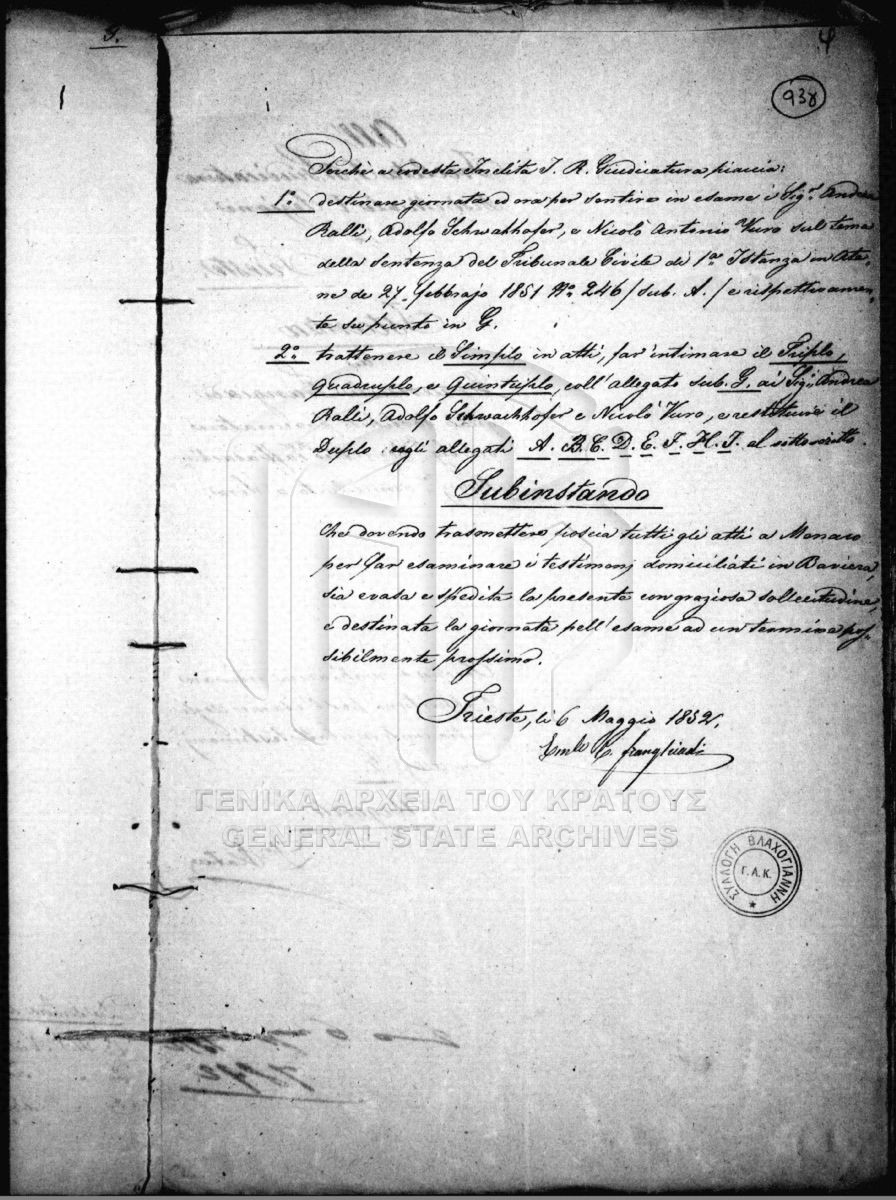 4
938
Perchè a codesta Inclita I. R. Giudicatura piaccia:
1º destinare giornata ed ora per sentire in esame i Sigri Andrea
Ralli, Adolfo Schwahhofer, e Nicolò Antonio Vuro sul tema
della sentenza del Tribunale Civile di 1ª Istanza in Ate-
ne de 27. febbrajo 1851 Nº 246 / sub. A. / e rispettivamen-
te su punto in G.
2º trattenere il Simplo in atti, far' intimare il Triplo,
Quadruplo, e Quintuplo, coll' allegato sub. G. ai Sigi Andrea
Ralli, Adolfo Schwachhofer e Nicolò Vuro, e restituire il
Duplo cogli allegati A. B. C. D. E. F. H. I. al sottoscritto.
Subinstando
Che dovendo trasmettere poscia tutti gli atti a Monaco
per far esaminare i testimonj domiciliati in Baviera,
sia evasa e spedita la presente con graziosa sollecitudine,
e destinata la giornata pell' esame ad un termine pos-
sibilmente prossimo.
Trieste, li 6 Maggio 1852.
Emle C. franghiadi
ΓΕΝΙΚΑ ΑΡΧΕΙΑ ΤΟΥ ΚΡΑΤΟΥΣ
GENERAL STATE ARCHIVES
ΣΥΛΛΟΓΗ ΒΛΑΧΟΓΙΑΝΝΗ
Γ.Α.Κ.